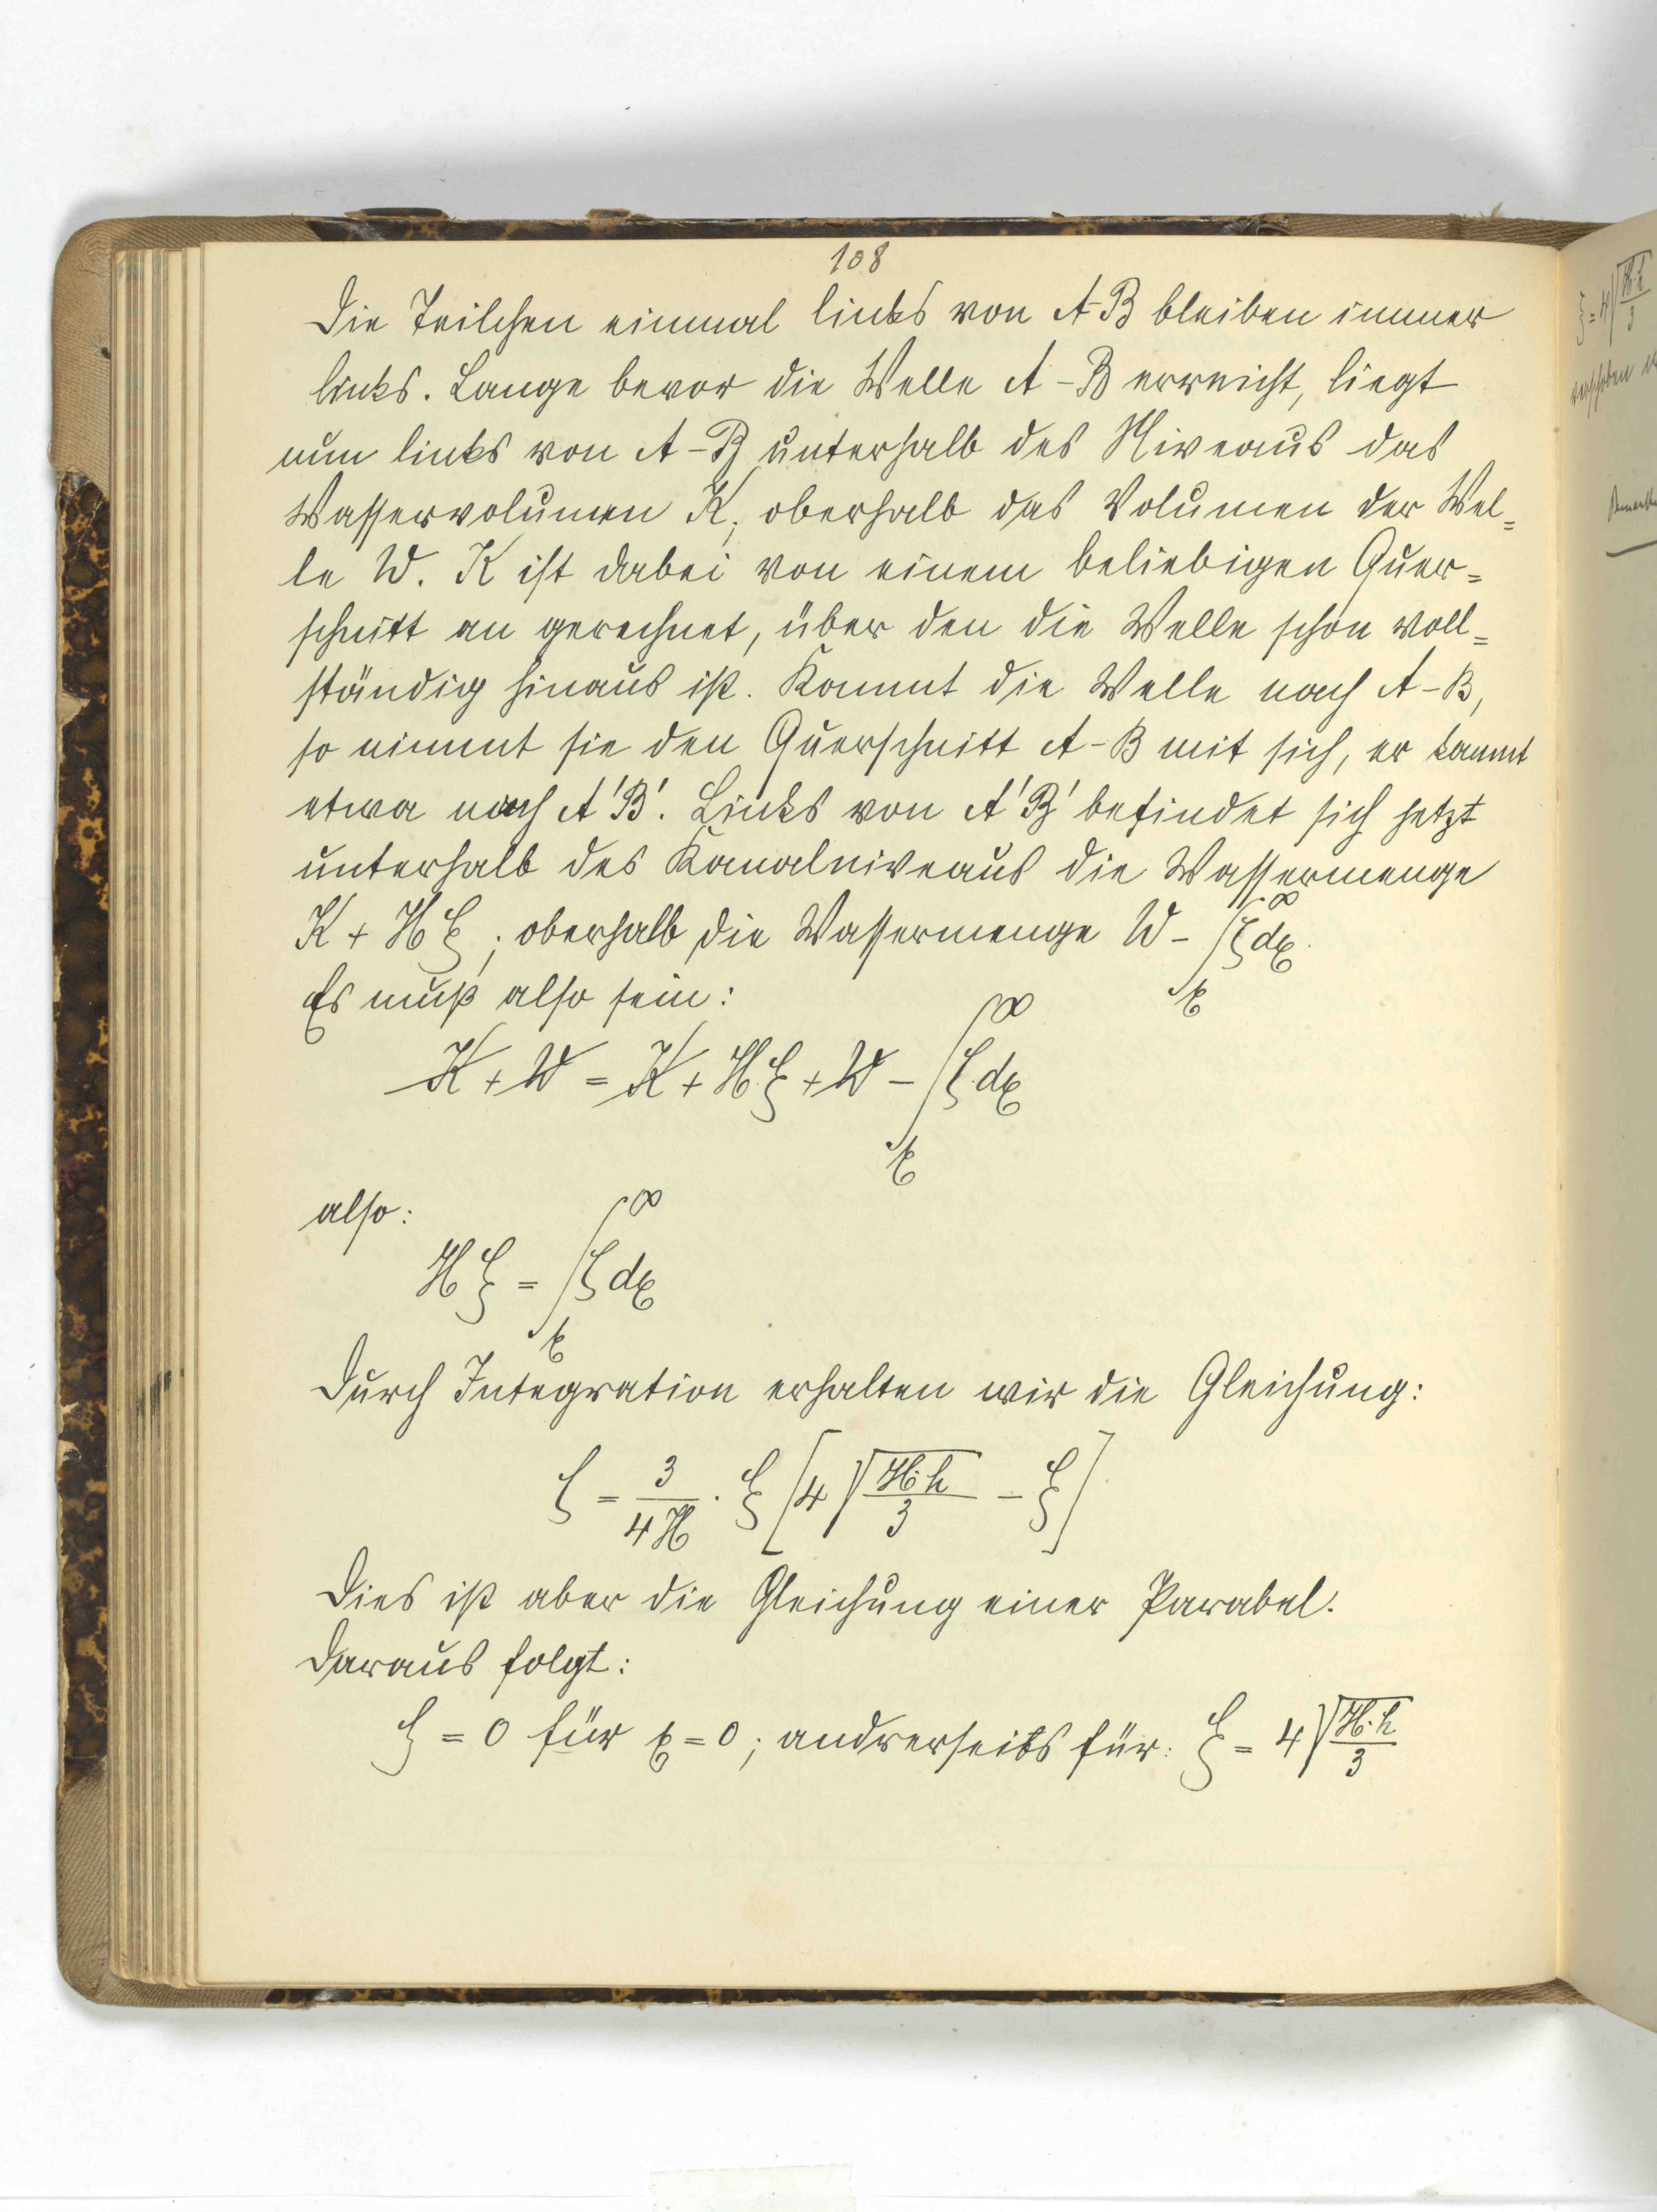 108
Die Teilchen einmal links von A-B bleiben immer
links. Lange bevor die Welle A-B erreicht, liegt
nun links von A-B unterhalb des Niveaus das
Wasservolumen K, oberhalb das Volumen der Wel=
le W. K ist dabei von einem beliebigen Quer=
schnitt an gerechnet, über den die Welle schon voll=
ständig hinaus ist. Kommt die Welle nach A-B,
so nimmt sie den Querschnitt A-B mit sich, er kommt
etwa nach A'B'. Links von A'B' befindet sich jetzt
unterhalb des Kanalniveaus die Wassermenge
K + Hξ; oberhalb die Wassermenge W - ∫ₓ^∞ ζdx.
Es muß also sein:
K + W = K + H·ξ + W - ∫ₓ^∞ ζ·dx
also:
Hξ = ∫ₓ^∞ ζdx
Durch Integration erhalten wir die Gleichung:
ζ = 3/4H · ξ [4 √(H·h/3) - ξ]
Dies ist aber die Gleichung einer Parabel.
Daraus folgt:
ζ = 0 für x = 0; andrerseits für: ξ = 4√(H·h/3)
ξ = 4√(H·h/3)
verschoben